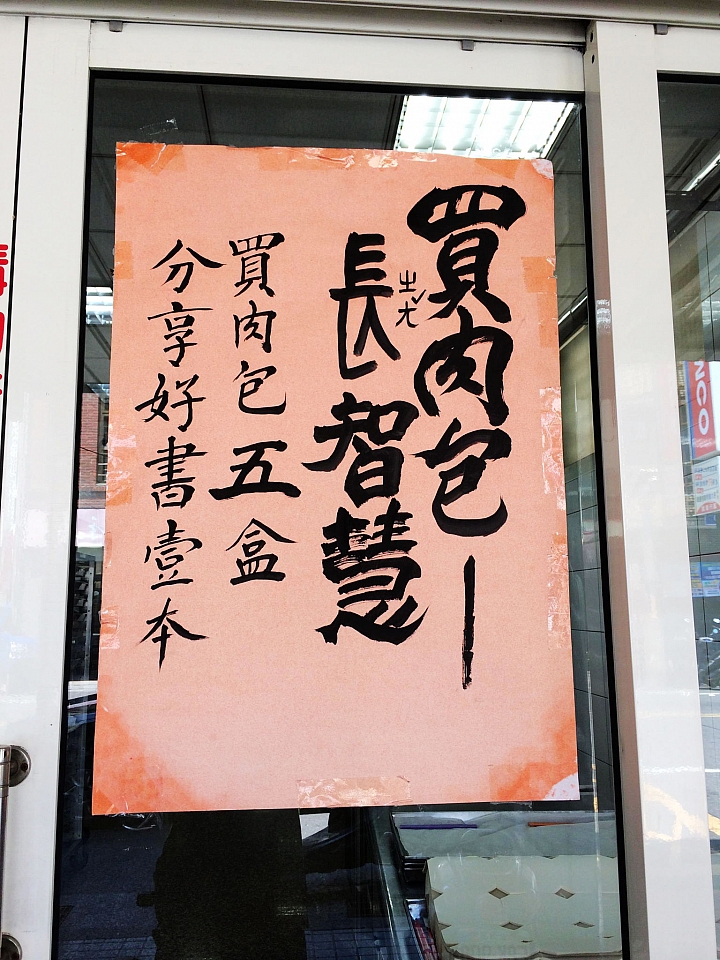 買肉包—
長ㄓㄤˇ智慧
買肉包五盒
分享好書壹本
NCO